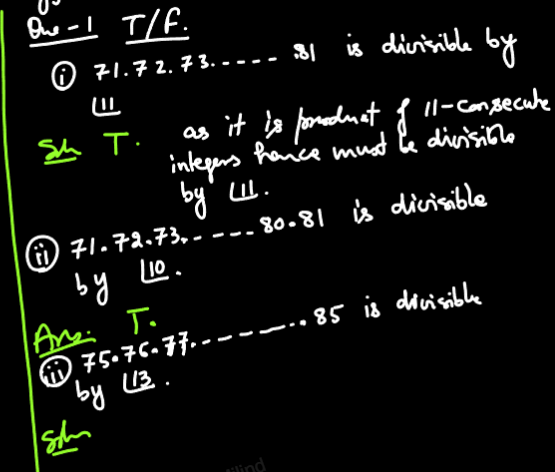 Que-1 T/F.
(i) 71.72.73.----- .81 is divisible by
⌊11
Sol T. as it is product of 11-consecute
integers hence must be divisible
by ⌊11.
(ii) 71.72.73.----- 80.81 is divisible
by ⌊10.
Ans. T.
(iii) 75.76.77.-------..85 is divisible
by ⌊13.
Soln